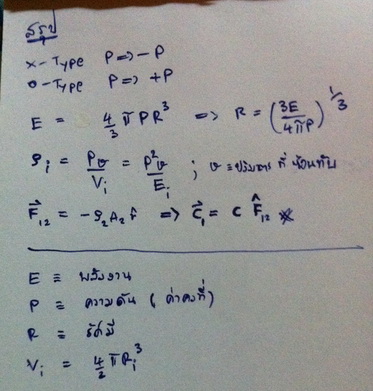 สรุป
x-Type P => -P
o-Type P => +P
E = 4/3 πPR³ => R = (3E/4πP)^1/3
ρᵢ = Pϑ/Vᵢ = P²ϑ/Eᵢ ; ϑ ≡ ปริมาตร ที่ ซ้อนทับ
F⃗₁₂ = -ρ₂A₂ r̂ => C⃗₁ = C F̂₁₂ ※
E ≡ พลังงาน
P ≡ ความดัน ( ค่าคงที่ )
R ≡ รัศมี
Vᵢ = 4/3 πRᵢ³